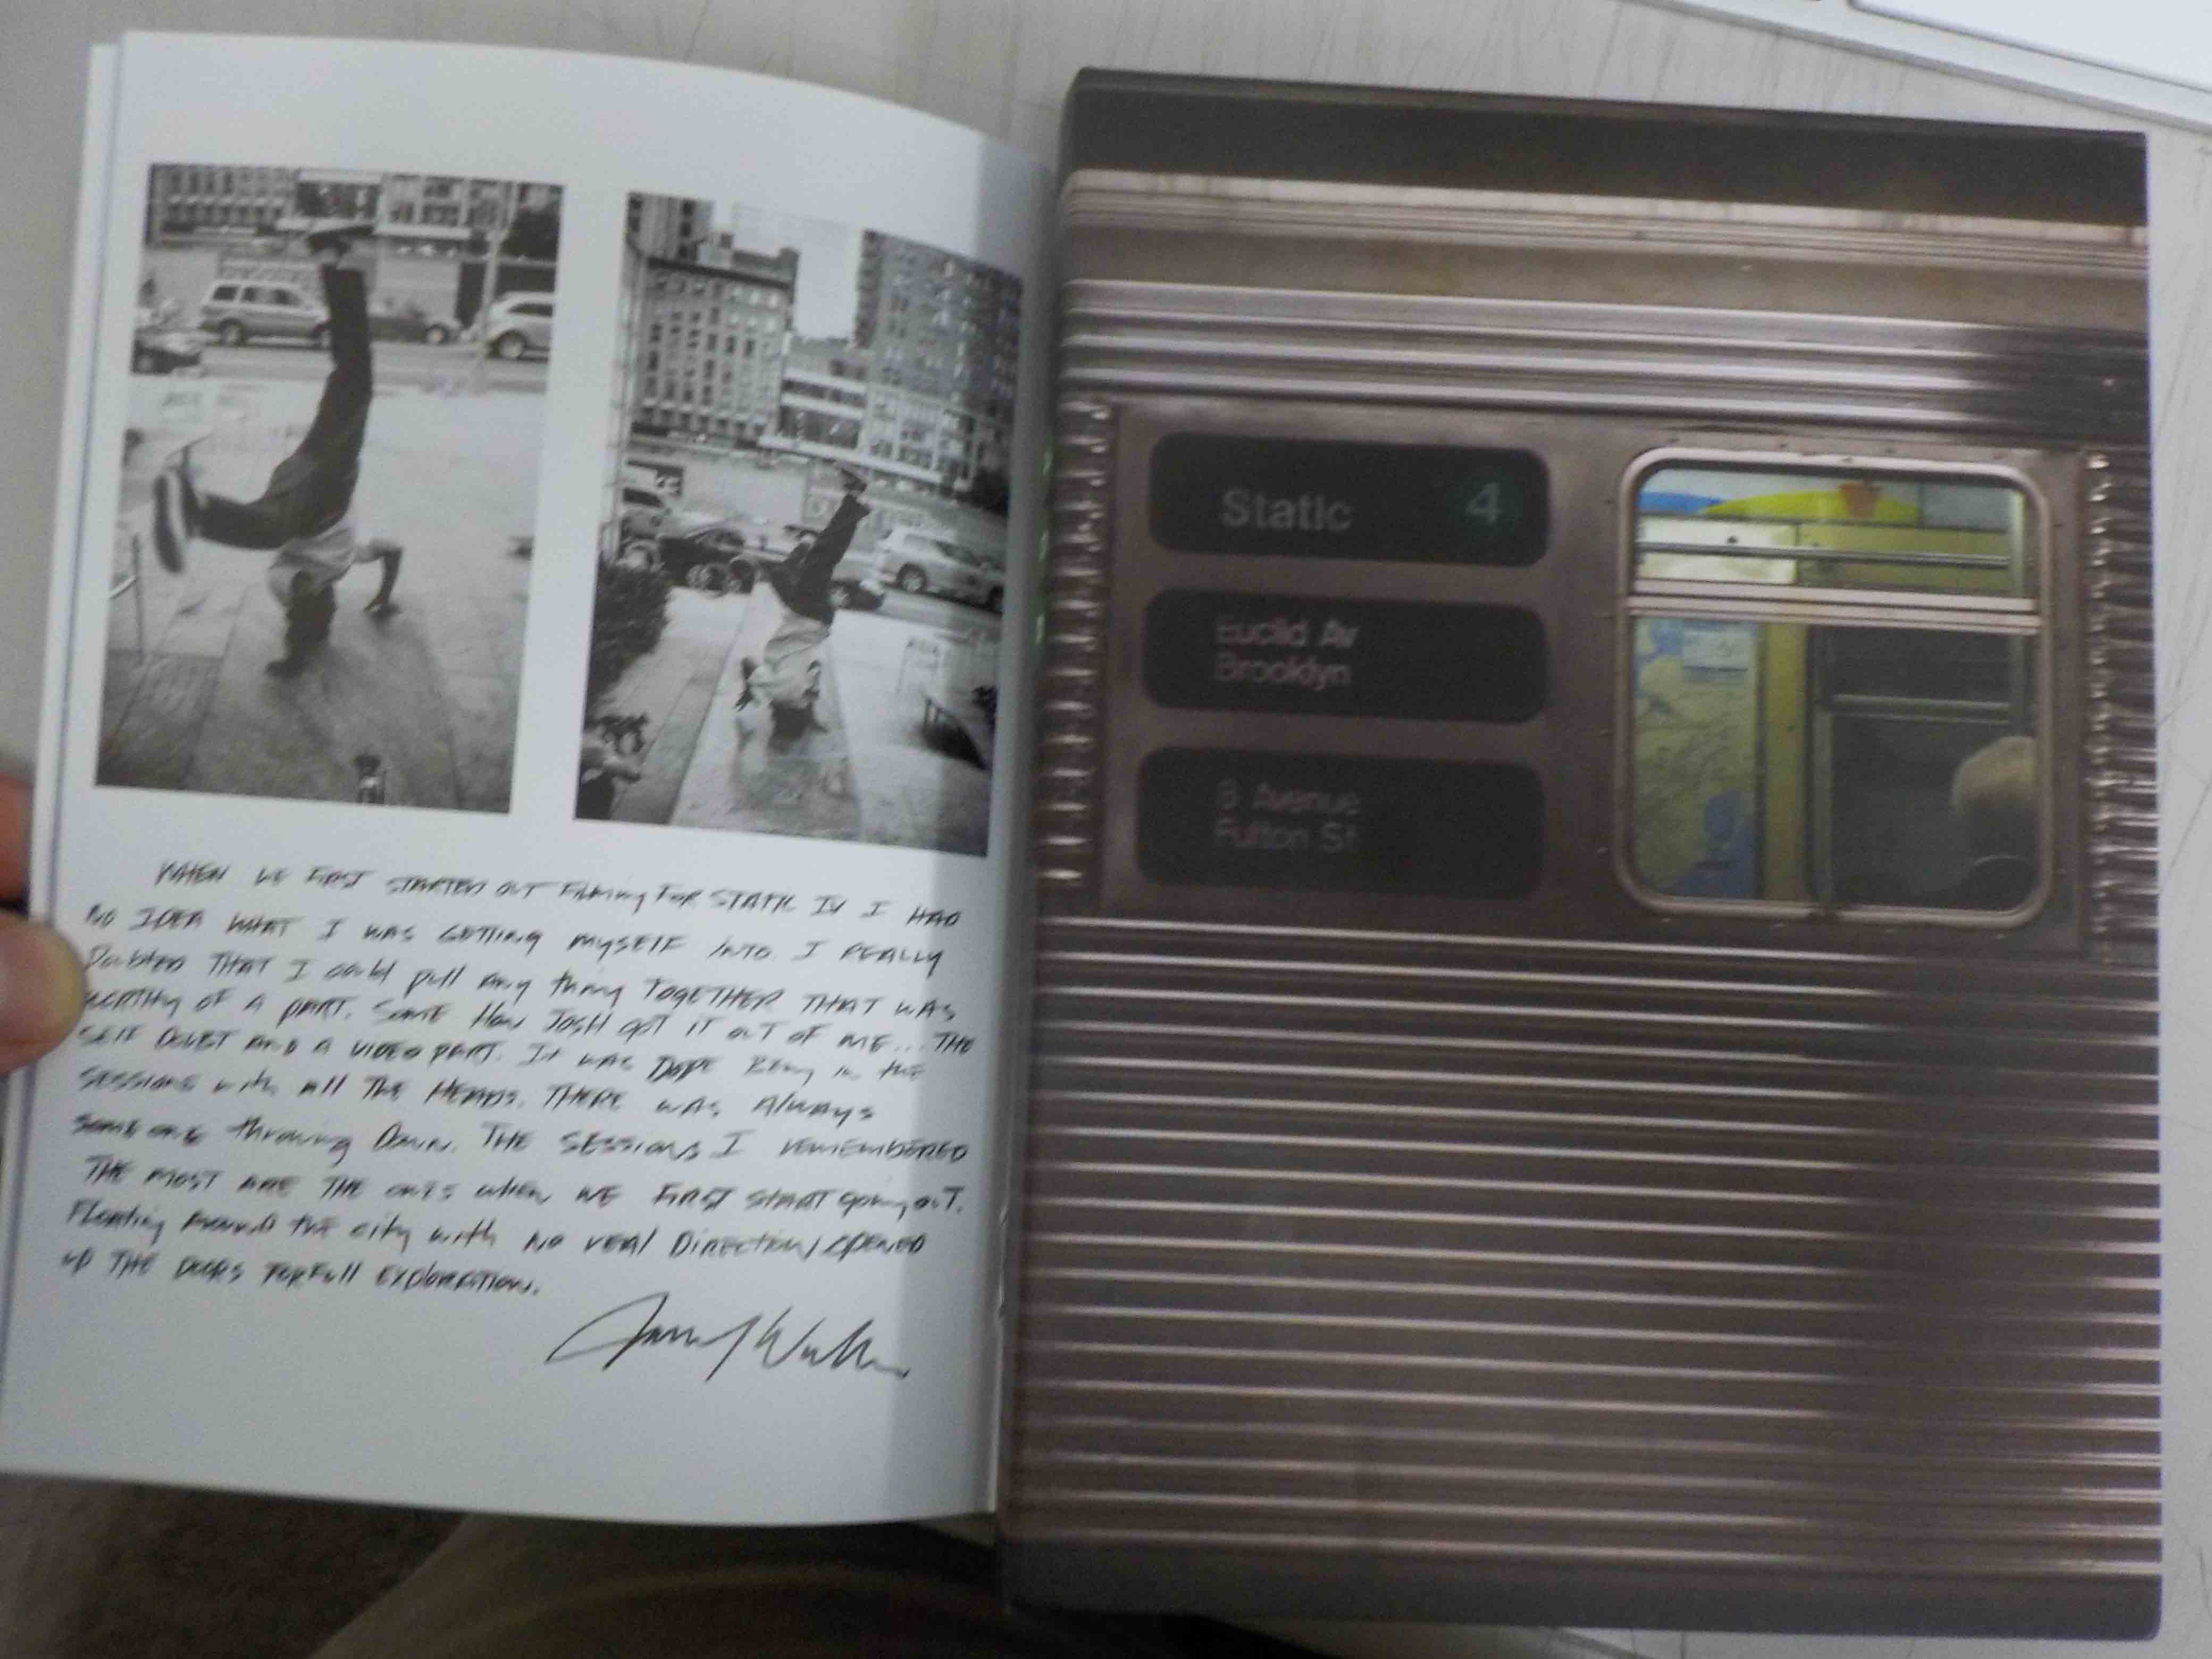 WHEN WE FIRST STARTED OUT FILMING FOR STATIC IV I HAD
NO IDEA WHAT I WAS GETTING MYSELF INTO. I REALLY
Doubted THAT I could pull any thing TOGETHER THAT WAS
WORTHY OF A PART. SOME HOW JOSH GOT IT OUT OF ME... THE
SELF DOUBT AND A VIDEO PART. IT WAS DOPE Being in the
SESSIONS with all THE HEADS. THERE WAS Always
SOMEONE throwing Down. THE SESSIONS I REMEMBERED
THE MOST ARE THE ONES when WE FIRST START going OUT.
Floating Around the city with NO real Direction OPENED
UP THE DOORS FOR Full EXPLORATION.
Static 4
Euclid Av
Brooklyn
8 Avenue
Fulton St